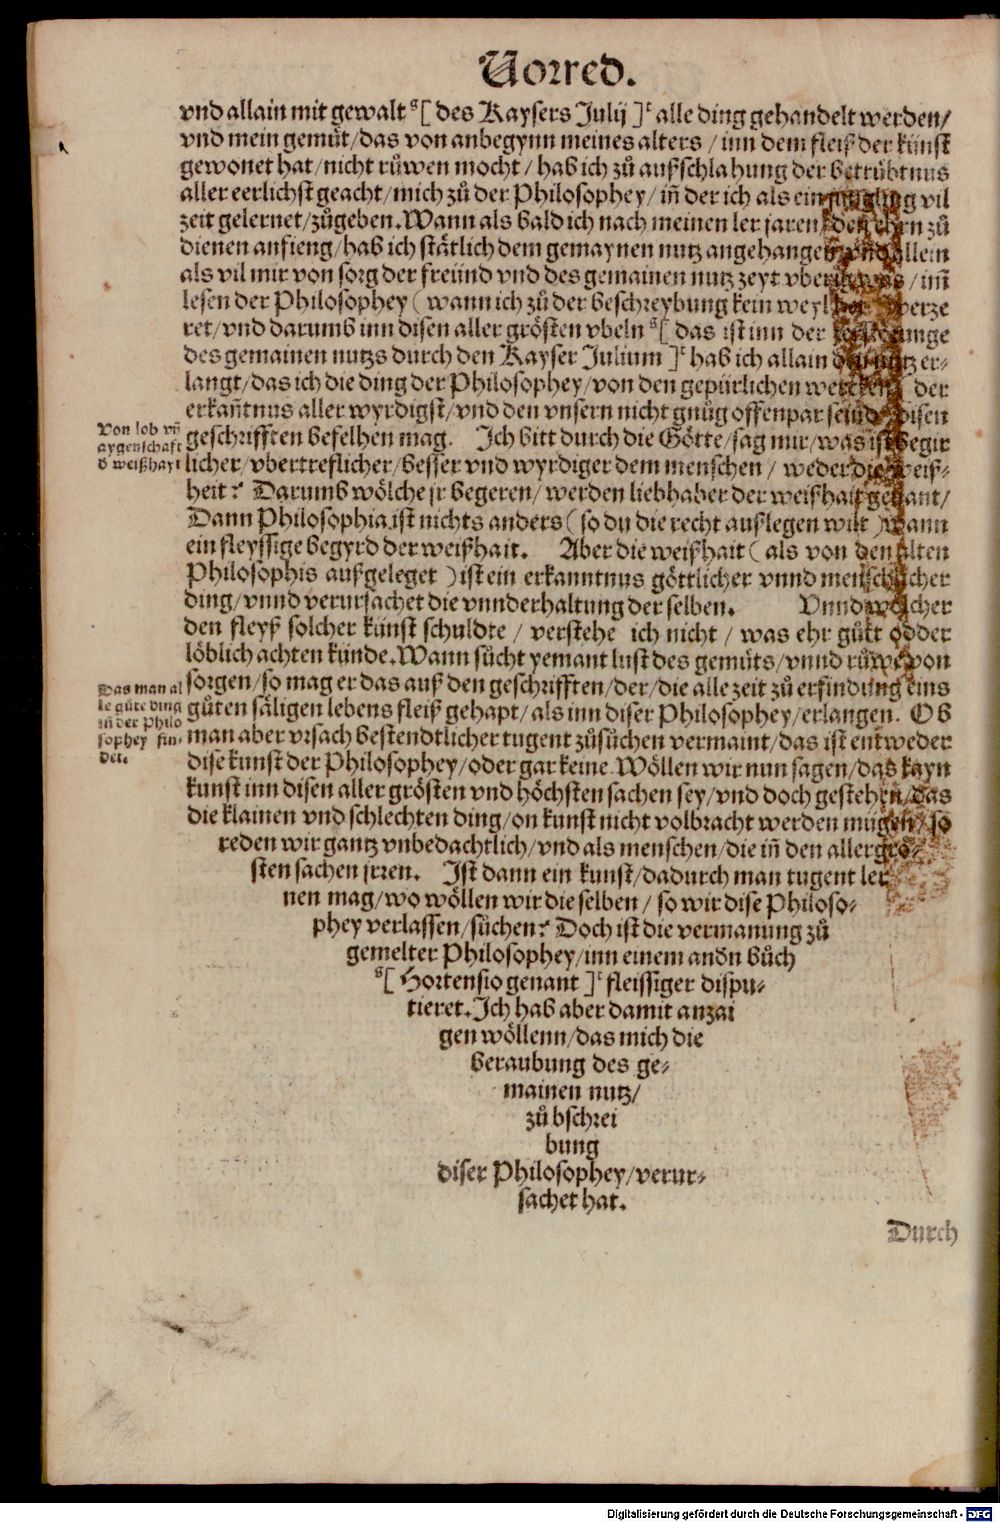 Vorred.
vnd allain mit gewalt ᵍ[ des Kaysers Julij ]ᵗ alle ding gehandelt werden/
vnd mein gemüt/das von anbegynn meines alters / inn dem fleiß der künst
gewonet hat/nicht rüwen mocht / hab ich zů außschlahung der betrübtnus
aller eerlichst geacht/mich zů der Philosophey/ iñ der ich als ein vil
zeit gelernet/zůgeben. Wann als bald ich nach meinen ler jaren/ zů
dienen anfieng/hab ich stätlich dem gemaynen nutz angehangen allein
als vil mir von sorg der freünd vnd des gemainen nutz zeyt / inñ
lesen der Philosophey ( wann ich zů der beschreybung kein weyl verze
ret/vnd darumb inn disen aller grösten vbeln ᵍ[ das ist inn der
des gemainen nutzs durch den Kayser Julium ]ᵗ hab ich allain er-
langt/das ich die ding der Philosophey/von den gepürlichen wercken der
erkañtnus aller wyrdigst/vnd den vnsern nicht gnůg offenpar seind disen
Von lob vñ
aygenschaft
d weißhayt
geschrifften befelhen mag. Ich bitt durch die Götte/sag mir/was ist begir
licher/vbertreflicher/besser vnd wyrdiger dem menschen / weder die weiß-
heit? Darumb wölche jr begeren/werden liebhaber der weißhait genant/
Dann Philosophia ist nichts anders ( so du die recht auslegen wilt ) wann
ein fleyssige begyrd der weißhait. Aber die weißhait ( als von den alten
Philosophis außgeleget ) ist ein erkanntnus göttlicher vnnd menschlicher
ding/vnnd verursachet die vnnderhaltung der selben. Vnnd wölcher
den fleyß solcher künst schuldte / verstehe ich nicht / was ehr gůtt odder
löblich achten künde. Wann sücht yemant lust des gemüts/vnnd růwe von
Das man al
le gůte ding
iñ der Philo
sophey fin-
det.
sorgen/so mag er das auß den geschrifften/der/die alle zeit zů erfindung eins
gůten säligen lebens fleiß gehapt/als inn diser Philosophey/erlangen. Ob
man aber vrsach bestendtlicher tugent zůsůchen vermaint/das ist entweder
dise kunst der Philosophey/oder gar keine. Wöllen wir nun sagen/das kayn
kunst inn disen aller grösten vnd höchsten sachen sey/vnd doch gestehen/das
die klainen vnd schlechten ding/on kunst nicht volbracht werden mügen/so
reden wir gantz vnbedachtlich/vnd als menschen/die iñ den allergrö-
sten sachen jrren. Ist dann ein kunst/dadurch man tugent ler
nen mag/wo wöllen wir die selben / so wir dise Philoso-
phey verlassen/sůchen? Doch ist die vermanung zů
gemelter Philosophey/inn einem andn bůch
ᵍ[ Hortensio genant ]ᵗ fleissiger dispu-
tieret. Ich hab aber damit anzai
gen wöllenn/das mich die
beraubung des ge-
mainen nutz/
zů bschrei
bung
diser Philosophey/verur-
sachet hat.
Durch
Digitalisierung gefördert durch die Deutsche Forschungsgemeinschaft - DFG